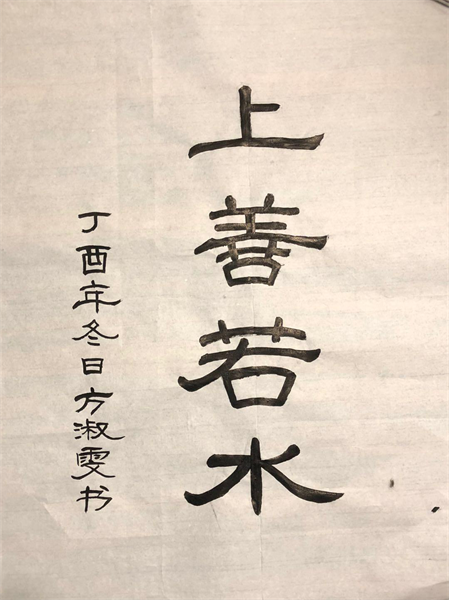 上善若水
丁酉年冬日方淑雯书